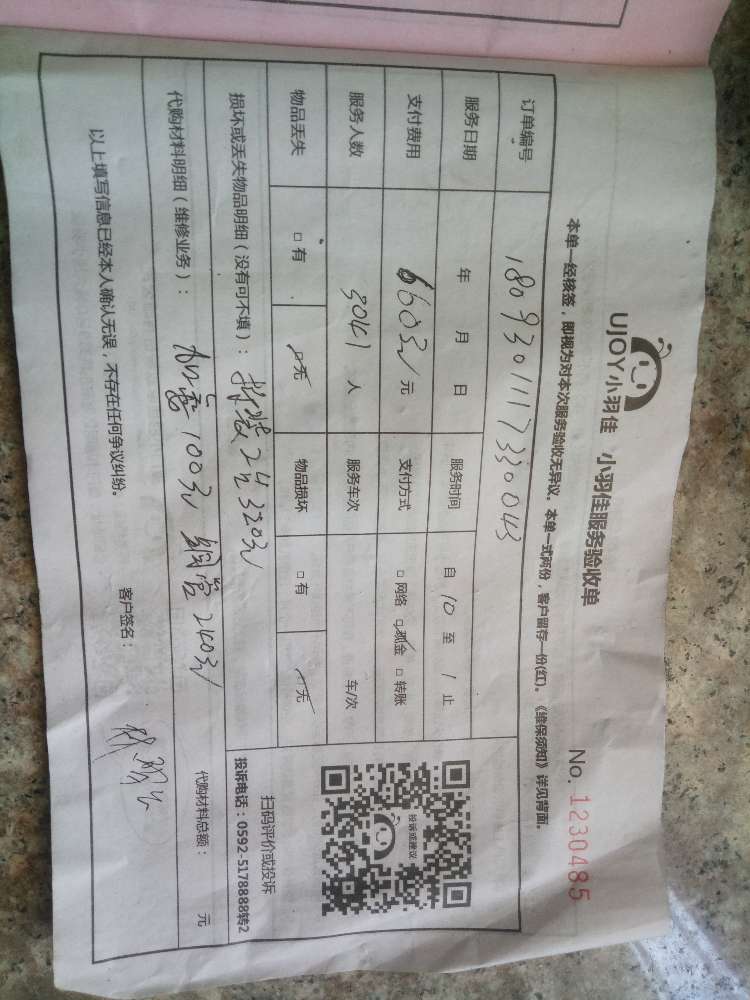 UJOY小羽佳 小羽佳服务验收单 No. 1230485
本单一经核签，即视为对本次服务验收无异议。本单一式两份，客户留存一份(红)。《维保须知》详见背面。
订单编号 1809301117330043
服务日期 年 月 日 服务时间 自 10 至 1 止
支付费用 660元 元 支付方式 □ 网络 □ 现金 □ 转账
服务人数 3041 人 服务车次 车/次
物品丢失 □ 有 □ 无 物品损坏 □ 有 □ 无
损坏或丢失物品明细（没有可不填）： 拆装2台320元
代购材料明细（维修业务）： 加雪100元 铜管240元 代购材料总额： 元
以上填写信息已经本人确认无误，不存在任何争议纠纷。 客户签名：
投诉或建议
扫码评价或投诉
投诉电话：0592-5178888转2